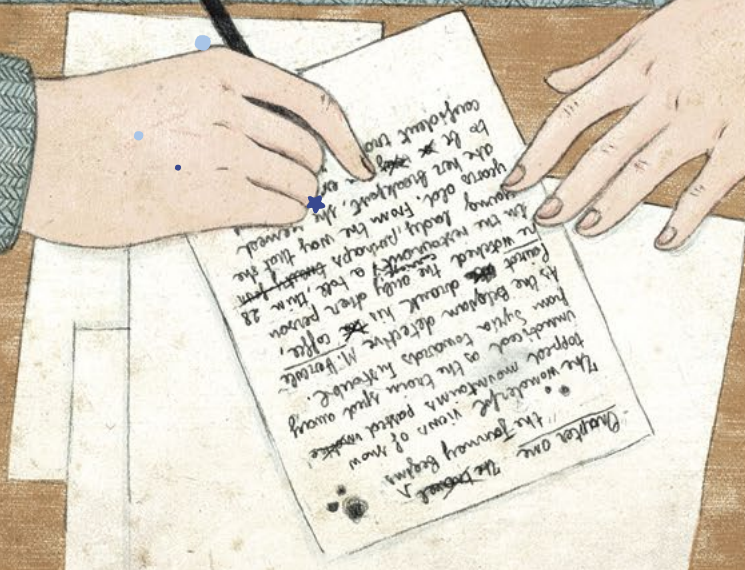 Chapter one "the Journey Begins
The wonderful views of snow
topped mountains passed
unnoticed as the train sped away
from Syria towards
As the Belgian detective M Hercule
Poirot drank his coffee,
he watched the only other person
in the restaurant, a tall thin
young lady, perhaps 28
years old. From the way that she
ate her breakfast, she seemed
to be
confident too